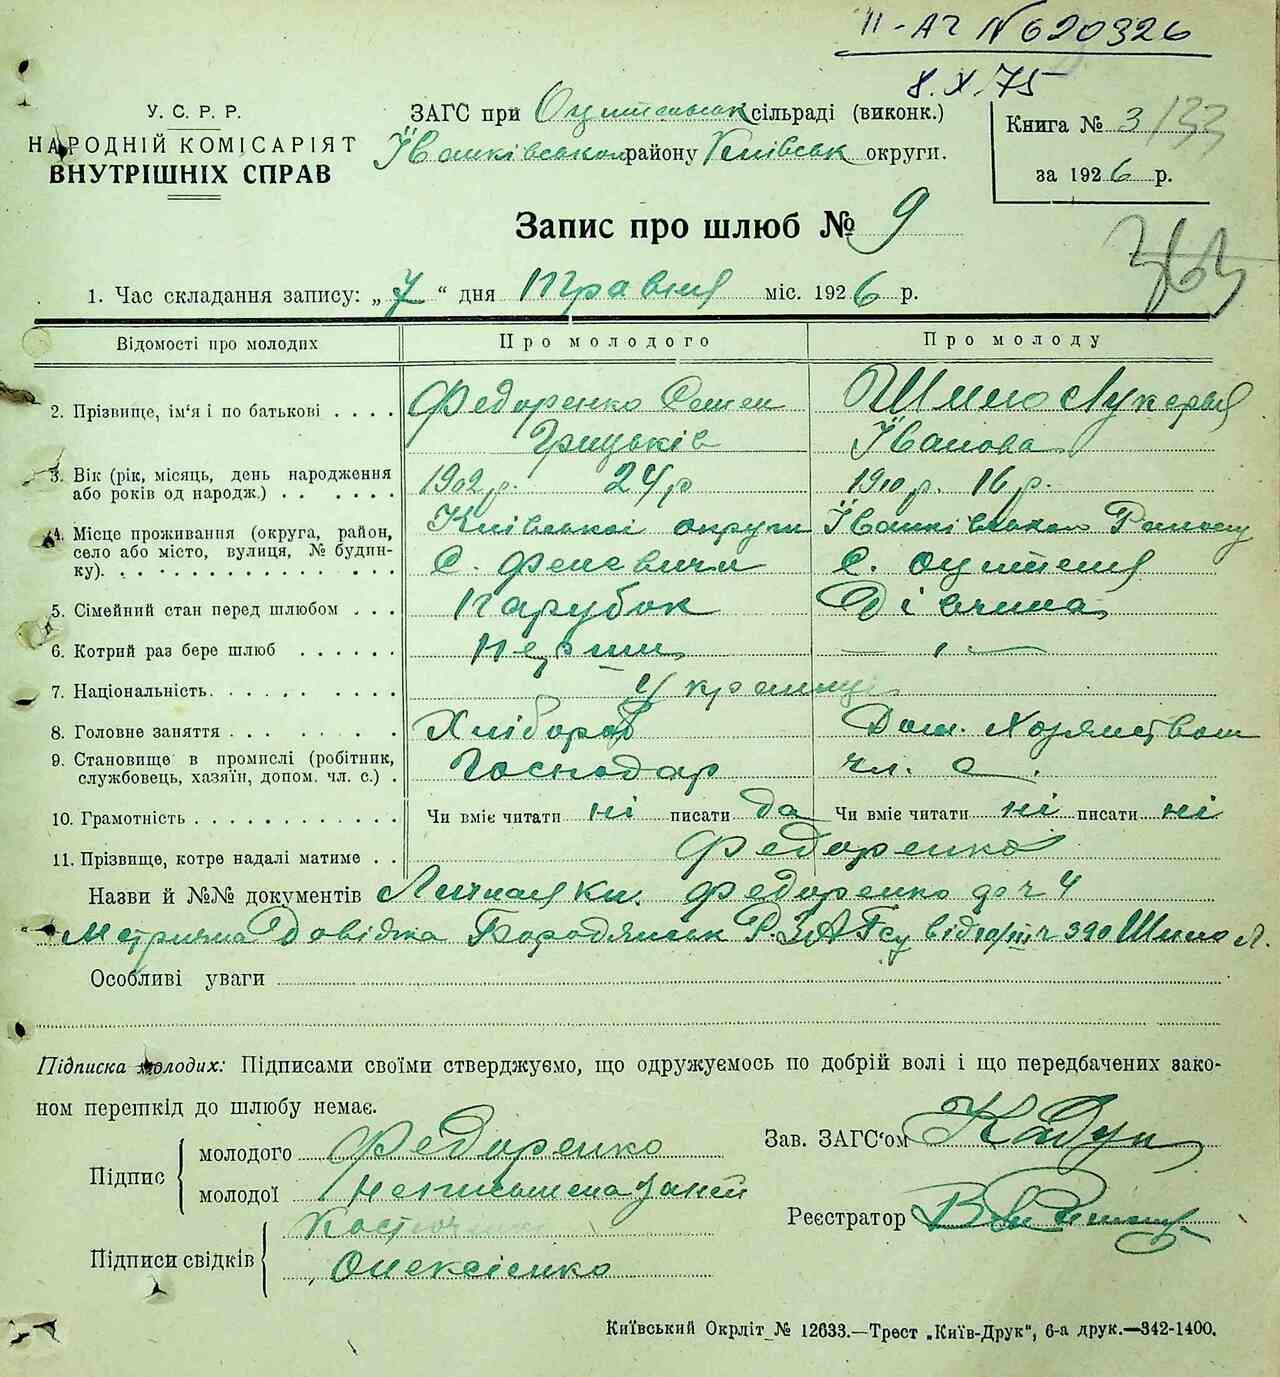 II-АЧ № 620326
8.X.75
У. С. Р. Р.
НАРОДНІЙ КОМІСАРІЯТ
ВНУТРІШНІХ СПРАВ
ЗАГС при сільраді (виконк.)
Іванківського району Київськ округи.
Книга № 3 /33
за 1926 р.
Запис про шлюб № 9
363
1. Час складання запису: „7“ дня Травня міс. 1926 р.
Відомості про молодих Про молодого Про молоду
2. Прізвище, ім'я і по батькові . . . . Федоренко Семен Шило Лукерья
Грицьків Іванова
3. Вік (рік, місяць, день народження або років од народж.) . . . . . . . 1902 р. 24 р 1910 р. 16 р.
4. Місце проживання (округа, район, село або місто, вулиця, № будинку). . . . . . . . . . . . . . . . . Київської округи Іванківського Району
С. Феневичи С. Оцителя
5. Сімейний стан перед шлюбом . . . Парубок Дівчина
6. Котрий раз бере шлюб . . . . . . Перший — „ —
7. Національність. . . . . . . . . . . Українці
8. Головне заняття . . . . . . . . . Хлібороб Дом. Хозяйством
9. Становище в промислі (робітник, службовець, хазяїн, допом. чл. с.) . Господар чл. с.
10. Грамотність . . . . . . . . . . . . Чи вміє читати ні писати да Чи вміє читати ні писати ні
11. Прізвище, котре надалі матиме . . Федоренко
Назви й №№ документів Личная кн. Федоренко
Метрична Довідка Бородянськ Р. ЗАГсу від 10/III ч 390 Шило Л.
Особливі уваги
Підписка молодих: Підписами своїми стверджуємо, що одружуємось по добрій волі і що передбачених зако-
ном перешкід до шлюбу немає.
Підпис
молодого Федоренко
молодої Неписьмена
Зав. ЗАГС'ом Кадун
Реєстратор
Підписи свідків
Олексієнко
Київський Окрліт № 12633.—Трест „Київ-Друк“, 6-а друк.—342-1400.